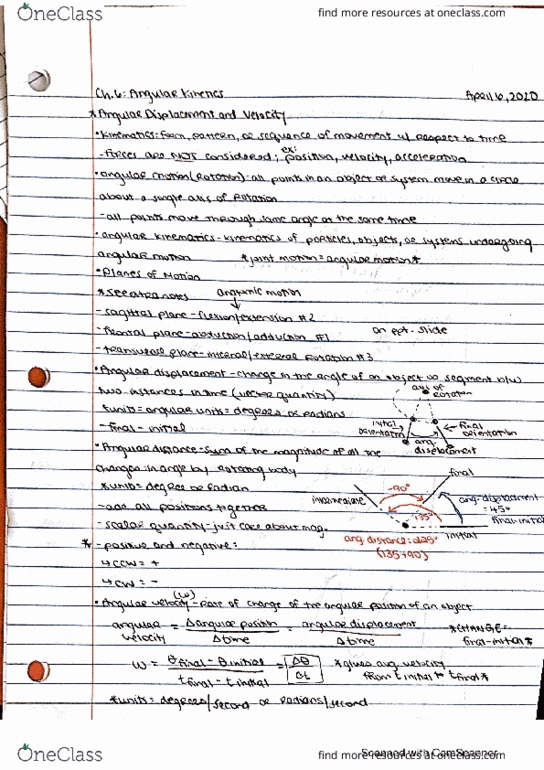 OneClass
find more resources at oneclass.com
Ch. 6: Angular Kinetics April 6, 2020
* Angular Displacement and Velocity
• kinematics: form, pattern, or sequence of movement w/ respect to time
- forces are NOT considered; ex: position, velocity, acceleration
• angular motion (rotation) - all points in an object or system move in a circle
about a single axis of rotation
- all points move through same angle at the same time
• angular kinematics - kinematics of particles, objects, or systems undergoing
angular motion * joint motion = angular motion *
• Planes of Motion
* see extra notes anatomic motion
- sagittal plane - flexion/extension #2
- frontal plane - abduction/adduction #1 on ppt. slide
- transverse plane - internal/external rotation #3
• Angular displacement - change in the angle of an object or segment b/w
two instances in time (vector quantity)
axis of rotation
* units - angular units: degrees or radians
- final - initial
initial orientation
final orientation
ang. displacement
• Angular distance - sum of the magnitude of all the
changes in angle by rotating body
* units = degree or radian
- add all positions together
- scalar quantity - just care about mag.
final
intermediate
-90°
135°
ang. displacement = 45°
final-initial
initial
ang. distance = 225°
(135+90)
* - positive and negative:
↳ CCW = +
↳ CW = -
• Angular velocity (ω) - rate of change of the angular position of an object
angular velocity = Δ angular position / Δ time = angular displacement / Δ time
* CHANGE = final-initial *
ω = θ final - θ initial / t final - t initial = Δθ / Δt
* gives avg velocity from t initial to t final *
* units = degrees/second or radians/second
OneClass
find more resources at oneclass.com
Scanned with CamScanner